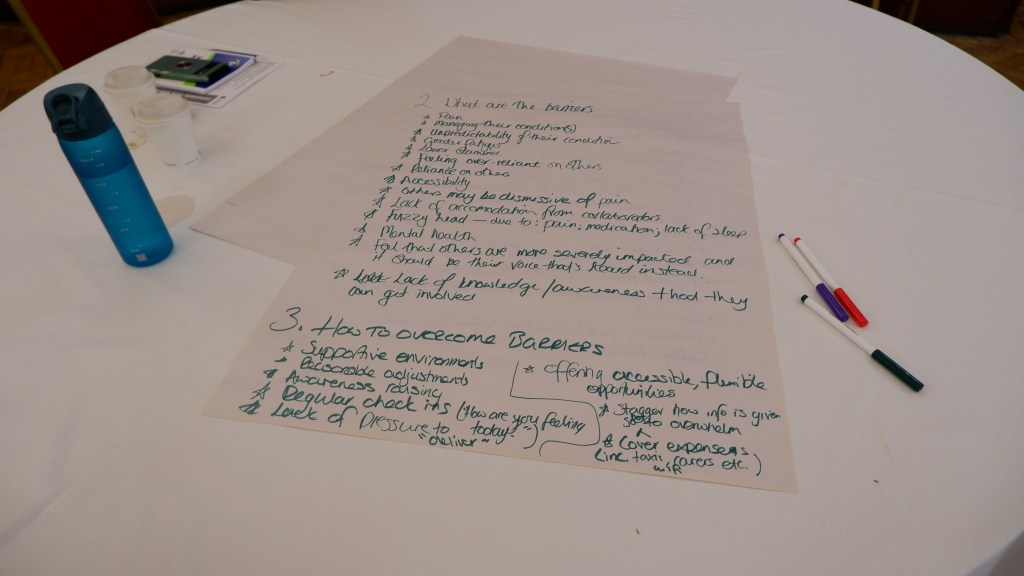 2. What are the barriers
* Pain
* Managing their condition(s)
* Unpredictability of their condition
* Greater fatigue
* Lower stamina
* Feeling over-reliant on others
* Reliance on others
* Accessibility
* Others may be dismissive of pain
* Lack of accomodation from collaborators
* Fuzzy head — due to: pain, medication, lack of sleep
* Mental health
* Feel that others are more severely impacted and
it should be their voice that's heard instead.
* Lack of knowledge/awareness that they
can get involved
3. HOW TO OVERCOME BARRIERS
* Supportive environments
* Reasonable adjustments
* Awareness raising
* Regular check ins (How are you feeling
today?")
* Lack of pressure to
"deliver"
* Offering accessible, flexible
opportunities
* Stagger how info is given
to overwhelm
* Cover expenses
(like taxis, carers etc.)
wifi